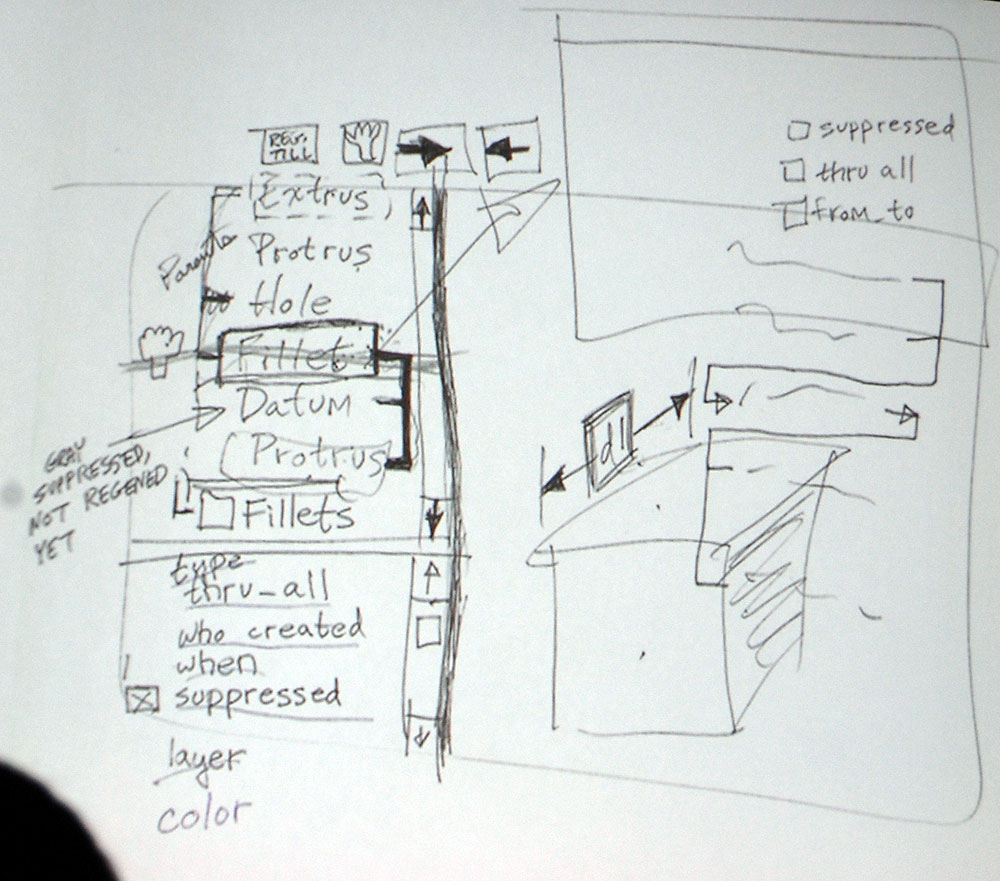 REG.
TILL
Extrus
Protrus
Parents
Hole
Fillet
Datum
Protrus
Fillets
GRAY
SUPPRESSED,
NOT REGENED
YET
type
thru_all
who created
when
suppressed
layer
color
suppressed
thru all
from_to
d1